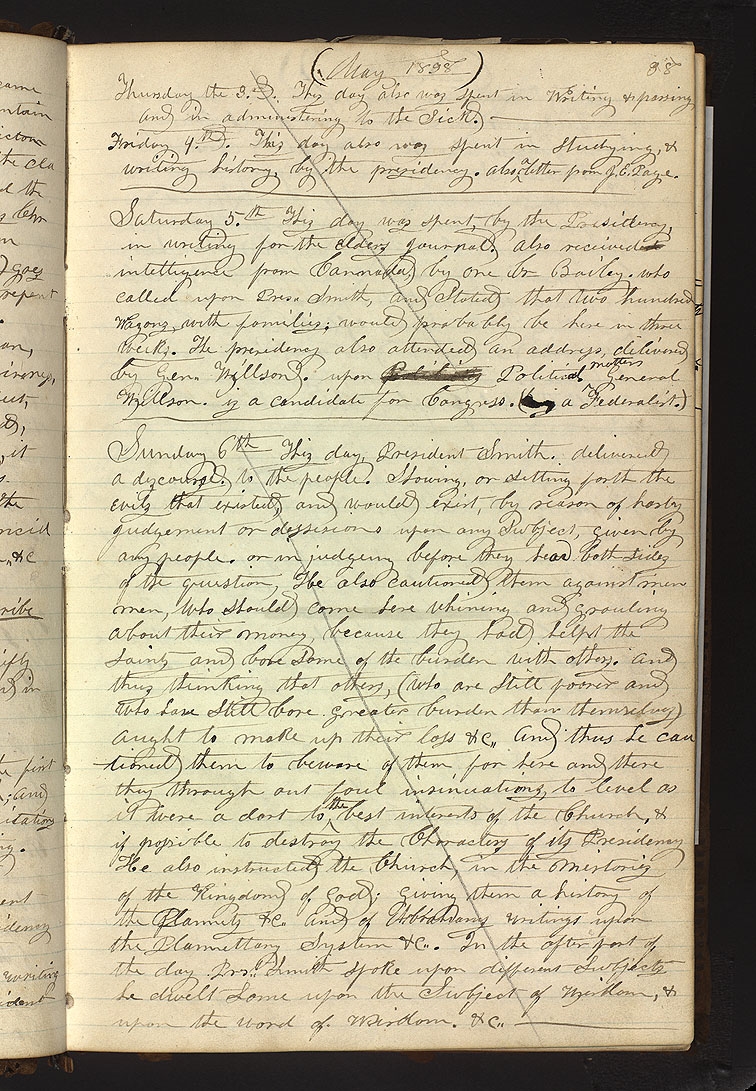 (May 1838)
38
Thursday the 3.d This day also was spent in Writing &
and in administering to the Sick.
Friday 4.th This day also was spent in studying, &
writing history, by the presidency. also a letter from J. E. Page.
Saturday 5.th This day was spent, by the Presidency,
in writing for the elders journal. also received
intelligence from Cannada, by one br Bailey. who
called upon Pres. Smith, and Stated that two hundred
Wagons, with families; would probably be here in three
Weeks. The presidency also attended an address, delivered
by Gen. Willson. upon Political matters General
Willson. is a candidate for Congress. ( a Federalist.)
Sunday 6th This day, President Smith. delivered
a discourse. to the people. Showing, or setting forth the
evils that existed, and would exist, by reason of hasty
judgement or dessisions upon any Subject, given by
any people. or in judgeing before they hear both sides
of the question, He also cautioned them against men
men, who should come here whining and grouling
about their money, because they had, helpt the
Saints and bore some of the burden with others. and
thus thinking that others, (who are still poorer and
who have still bore greater burden than themselves)
aught to make up their loss &c. And thus he cau
tioned them to beware of them for here and there
they through out foul insinuations, to level as
it were a dart to the best interests of the Church, &
if possible to destroy the Characters of its Presidency
He also instructed the Church, in the mistories
of the Kingdom of God; giving them a history of
the Plannits &c. and of Abrahams writings upon
the Plannettary System &c. In the after part of
the day Prs. Smith spoke upon different Subjects
he dwelt some upon the Subject of Wisdom, &
upon the word of Wisdom. &c.